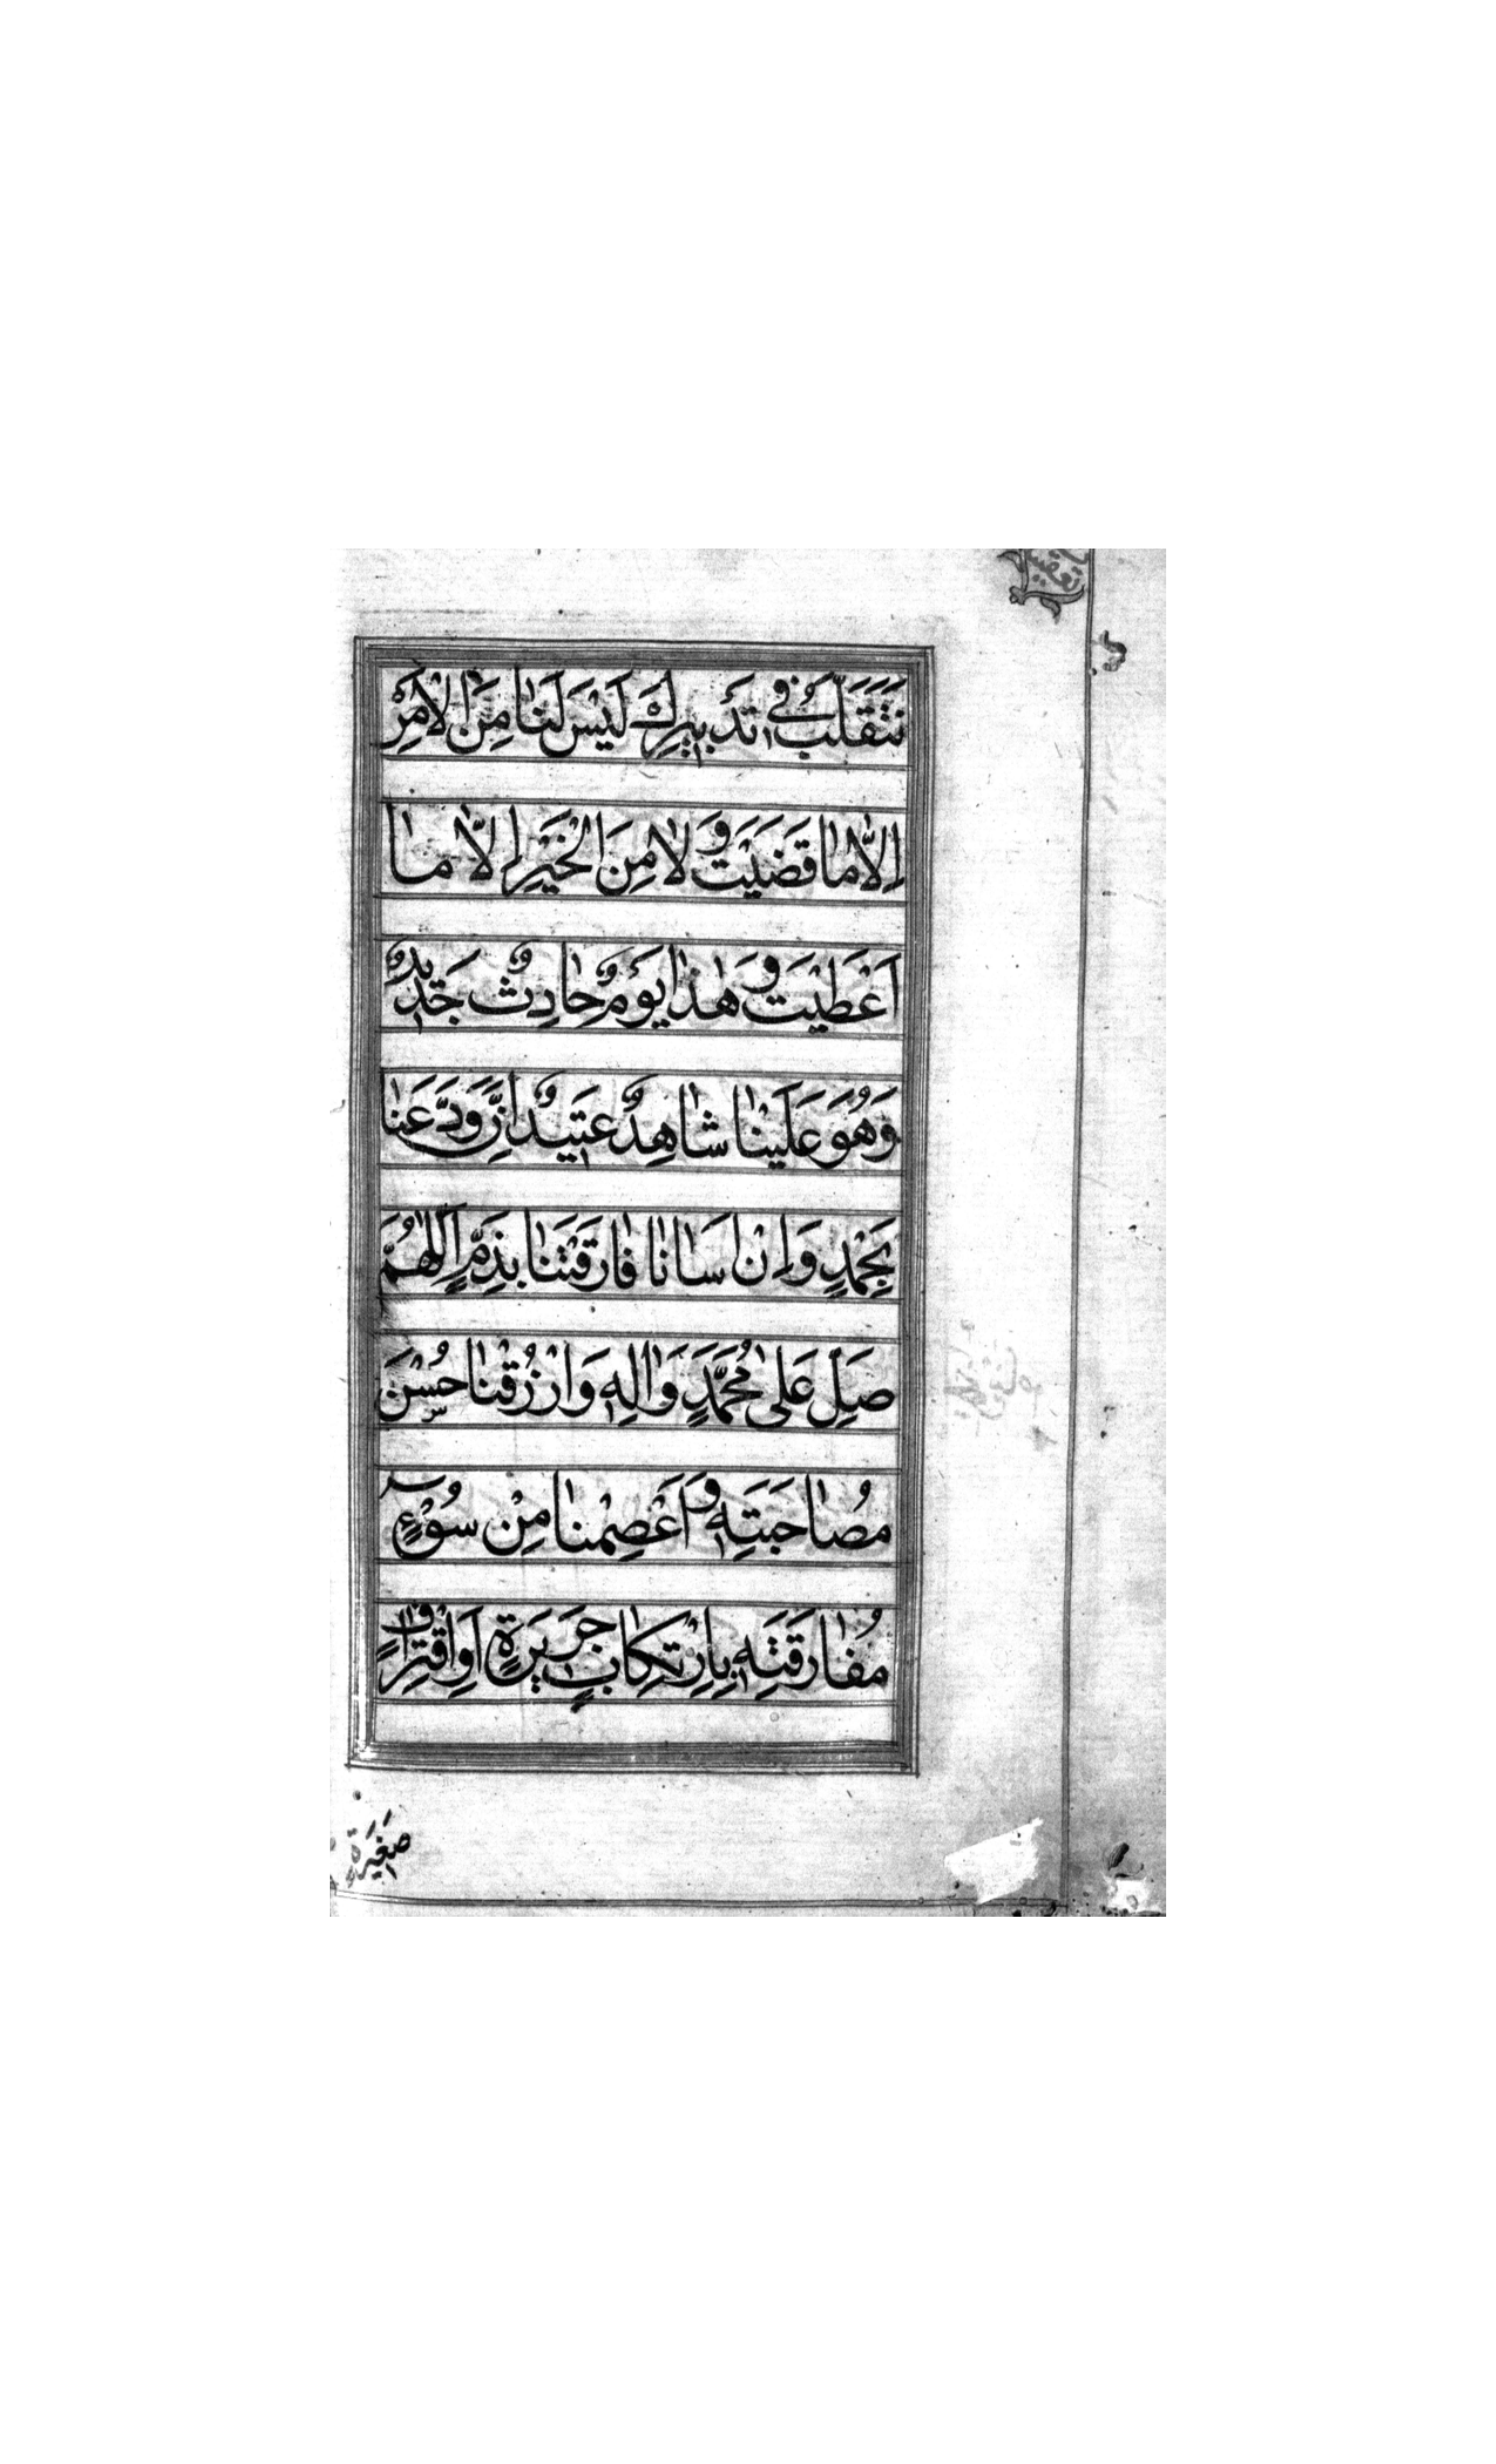 نَتَقَلَّبُ فِي تَدْبِيرِكَ لَيْسَ لَنَا مِنَ الْاَمْرِ
اِلَّا مَا قَضَيْتَ وَلَا مِنَ الْخَيْرِ اِلَّا مَا
اَعْطَيْتَ وَهٰذَا يَوْمٌ حَادِثٌ جَدِيدٌ
وَهُوَ عَلَيْنَا شَاهِدٌ عَتِيدٌ اِنْ وَدَّعَنَا
بِحَمْدٍ وَاِنْ اَسَانَا فَارَقَتْنَا بِذَمٍّ اَللّٰهُمَّ
صَلِّ عَلٰى مُحَمَّدٍ وَاٰلِهِ وَارْزُقْنَا حُسْنَ
مُصَاحَبَتِهِ وَاعْصِمْنَا مِنْ سُوْءِ
مُفَارَقَتِهِ بِارْتِكَابِ جَرِيرَةٍ اَوِاقْتِرَافِ
صَغِيرَةٍ